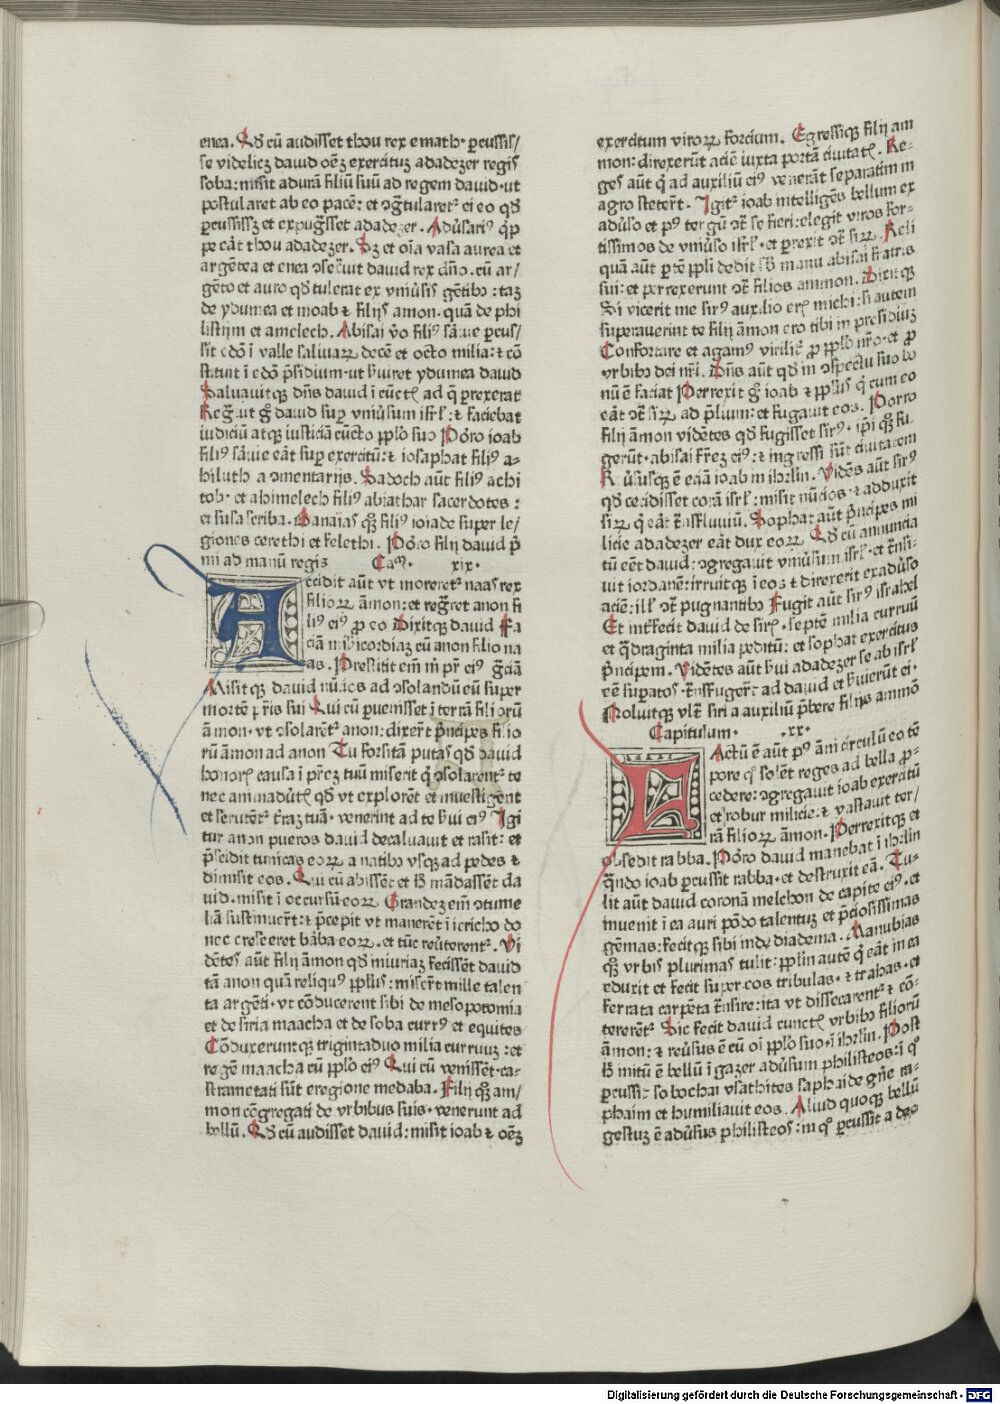 enea. Qd̄ cū audisset thou rex emath ꝑcussis/
se videlicꝫ dauid om̄ēꝫ exercituꝫ adadezer regis
soba: misit adurā filiū suū ad regem dauid·ut
postularet ab eo pacē: et ꝯgͣtularetᷣ ei eo qd̄
ꝑcussissꝫ et expugͣsset adadeꝫer. Adūsariꝰ qͥp
pe eāt thou adadeꝫer. Sꝫ et oīa vasa aurea et
argētea et enea ꝯsecͣuit dauid rex dn̄o. cū ar/
gēto et auro qd̄ tulerat ex vniūsis gētibꝰ: taꝫ
de ydumea et moab ⁊ filijs amon. quā de phi
listijm et amelech. Abisai v̄o filiꝰ sāuie ꝑcus/
sit edō ī valle saliuaꝝ decē et octo milia: ⁊ cō
stituit ī edō p̄sidium·ut ẜuiret ydumea dauid
Saluauitqꝫ dn̄s dauid ī cūctꝭ ad q̄ ꝑrexerat
Regͣuit gͦ dauid suꝑ vniūsum isrl̄: ⁊ faciebat
iudiciū atqꝫ iusticiā cūcto ppl̄o suo Porͦo ioab
filiꝰ sāuie eāt suꝑ exercitū: ⁊ iosaphat filiꝰ a-
hiluth a ꝯmentarijs. Sadoch aūt filiꝰ achi
tob· et ahimelech filiꝰ abiathar sacerdotes:
et susa scriba. Banaias qꝫ filiꝰ ioiade super le/
giones cerethi et felethi. Porͦo filij dauid pͥ
mi ad manū regis Caᵐ. xix.
Accidit aūt vt moreretᷣ naas rex
filioꝝ āmon: et regͣret anon fi
liꝰ eiꝰ ꝓ eo Dixitqꝫ dauid Fa
ciā mīẜicordiaꝫ cū anon filio na
as. Prestitit em̄ m̄ pr̄ eiꝰ gͣciā
Misitqꝫ dauid nūcios ad ꝯsolandū eū super
mortē pr̄is sui Qui cū ꝑuenisset ī terrā filiorū
āmon· vt ꝯsolaretᷣ anon: dixerͭ pͥncipes filio
rū āmon ad anon Tu forsitā putas qd̄ dauid
honorꝭ causa ī pr̄eꝫ tuū miserit qͥ ꝯsolarentᷣ te
nec animadūtꝭ qd̄ vt explorēt et inuestigent
et scrutētᷣ tr̄aꝫ tuā· venerint ad te ẜui eiꝰ Igi
tur anon pueros dauid decaluauit et rasit: et
p̄scidit tunicas eoꝝ a natibꝰ vsqꝫ ad pedes ⁊
dimisit eos. Qui cū abissēt et ħ mādassēt da
uid· misit ī occursū eoꝝ Grandeꝫ em̄ ꝯtume
liā sustinuerͭ: ⁊ p̄cepit vt manerēt ī iericho do
nec cresceret baͬba eoꝝ· et tūc reūterentᷣ. Vi
dētes aūt filij āmon qd̄ iniuriaꝫ fecissēt dauid
tā anon quā reliquꝰ ppl̄us: miserͭ mille talen
ta argēti· vt cōducerent sibi de mesopotomia
et de siria maacha et de soba currꝰ et equites
Cōduxeruntqꝫ trigintaduo milia curruuꝫ: et
regē maacha cū ppl̄o eiꝰ Qui cū venissēt· ca-
strametati sūt eregione medaba. Filij qꝫ am/
mon cōgregati de vrbibus suis· venerunt ad
bellū. Qd̄ cū audisset dauid: misit ioab ⁊ om̄ēꝫ
exercitum viroꝝ forcium. Egressiqꝫ filij am
mon: direxerūt aciē iuxta portā ciuitatꝭ. Re-
ges aūt qͥ ad auxiliū eiꝰ venerāt separatim in
agro steterͭ. Igitᷣ ioab intelligēs bellum ex
adūso et pꝰ tergū ꝯͭ se fieri: elegit viros for-
tissimos de vniūso isrl̄· et ꝑrexit ꝯͭ siꝝ. Reli
quā aūt ꝑtē ppl̄i dedit sb̄ manu abisai fratris
sui: et perrexerunt ꝯͭ filios ammon. Dixitqꝫ
Si vicerit me sirꝰ auxilio erꝭ michi: si autem
superauerint te filij āmon ero tibi in presidiuꝫ
Confortare et agamꝰ virilitᷣ ꝓ ppl̄o nr̄o· et ꝓ
vrbibꝰ dei nr̄i. Dn̄s aūt qd̄ in ꝯspectu suo bo
nū ē faciat Perrexit gͦ ioab ⁊ ppl̄us qͥ cum eo
eāt ꝯͭ siꝝ ad p̄lium: et fugauit eos. Porro
filij āmon vidētes qd̄ fugisset sirꝰ· ip̄i qꝫ fu
gerūt· abisai fr̄eꝫ eiꝰ: ⁊ ingressi sūt ciuitatem
Reūsusqꝫ ē eciā ioab in ihrl̄m. Vidēs aūt sirꝰ
qd̄ cecidisset corā isrl̄: misit nūcios· ⁊ adduxit
siꝝ qͥ eāt tͣnsfluuiū. Sophat aūt pͥnceps mi
licie adadezer eāt dux eoꝝ Qd̄ cū annuncia
tū eēt dauid: ꝯgregauit vniūsum isrl̄· et tͣnsi-
uit iordanē: irruitqꝫ ī eos ⁊ direxerit exadūso
aciē: ill̓ ꝯͭ pugnantibꝰ Fugit aūt sirꝰ israhel
Et int̓fecit dauid de sirꝭ· septē milia curruū
et qͣdraginta milia peditū: et sophat exercitus
pͥncipem. Vidētes aūt ẜui adadezer se ab isrl̄
eē suꝑatos· tͣnsfugerͭ ad dauid et ẜuierūt ei·
Noluitqꝫ vltͣ siri a auxiliū p̄bere filijs ammō
Capitulum. .xx.
Factū ē aūt pꝰ āni circulū eo tē
pore qͦ solēt reges ad bella ꝓ-
cedere: ꝯgregauit ioab exercitū
et robur milicie: ⁊ vastauit ter/
rā filioꝝ āmon. Perrexitqꝫ et
obsedit rabba. Porͦo dauid manebat ī ihrl̄m
qͣndo ioab ꝑcussit rabba· et destruxit eā. Tu-
lit aūt dauid coronā melchon de capite eiꝰ· et
inuenit ī ea auri pōdo talentuꝫ et p̄ciosissimas
gēmas: fecitqꝫ sibi inde diadema. Manubias
qꝫ vrbis plurimas tulit: ppl̄m autē qͥ eāt in ea
eduxit et fecit super eos tribulas· ⁊ trahas· et
ferrata carpēta tͣnsire: ita vt dissecarentᷣ ⁊ cō-
tererētᷣ Sic fecit dauid cunctꝭ vrbibꝰ filiorū
āmon: ⁊ reūsus ē cū oī ppl̄o suo· ī ihrl̄m. Post
ħ initū ē bellū ī gazer adūsum philisteos: ī qͦ
ꝑcussit sobochai vsathites saphai de gn̄e ra-
phaim et humiliauit eos. Aliud quoqꝫ bellū
gestuꝫ ē adūsus philisteos: in qͦ ꝑcussit a deo
Digitalisierung gefördert durch die Deutsche Forschungsgemeinschaft - DFG